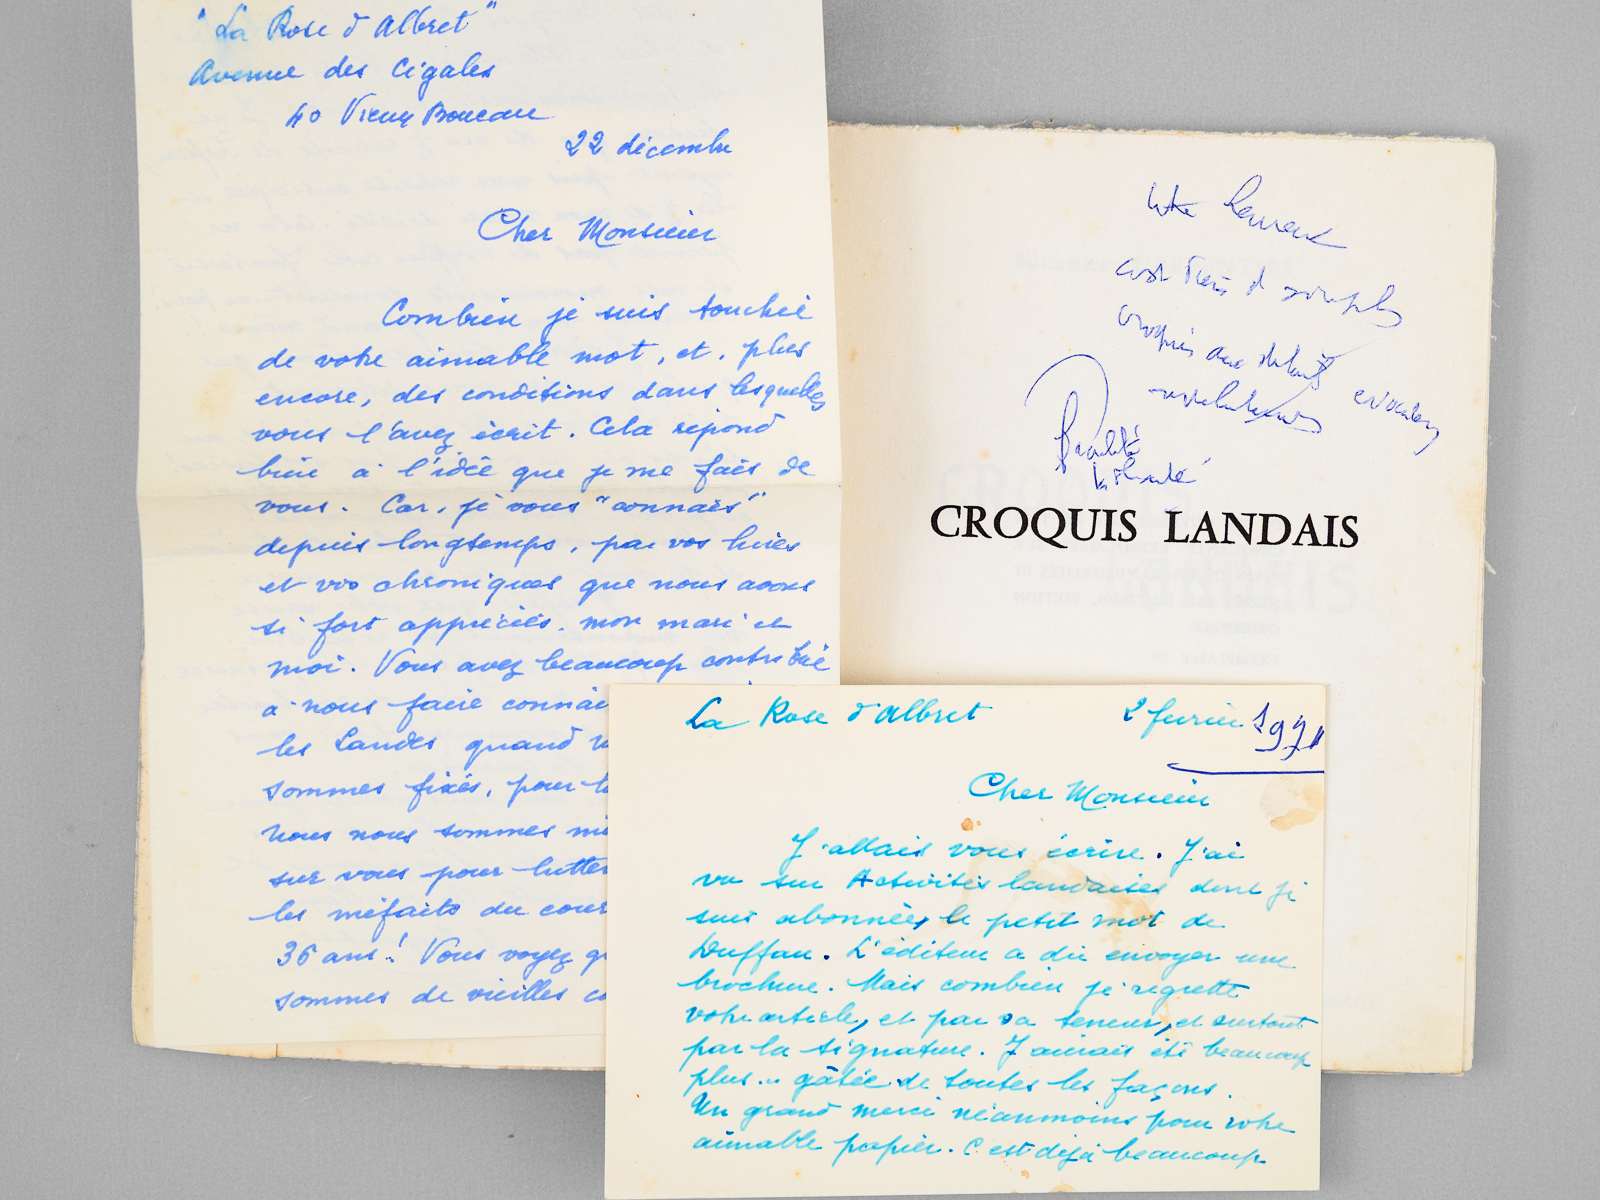 "La Rose d'Albret"
Avenue des Cigales
40 Vieux Boucau
22 décembre
Cher Monsieur
Combien je suis touchée
de votre aimable mot, et, plus
encore, des conditions dans lesquelles
vous l'avez écrit. Cela répond
bien à l'idée que je me fais de
vous. Car, je vous "connais"
depuis longtemps, par vos livres
et vos chroniques que nous avons
si fort appréciés, mon mari et
moi. Vous avez beaucoup contribué
à nous faire connaî
les Landes quand n
sommes fixés, pour l
nous nous sommes mi
sur vous pour lutter
les méfaits du cour
36 ans! Vous voyez q
sommes de vieilles co
croquis
CROQUIS LANDAIS
La Rose d'Albret
2 février 1971
Cher Monsieur
J'allais vous écrire. J'ai
vu sur Activités landaises dont je
suis abonnée, le petit mot de
Duffau. L'éditeur a dû envoyer une
brochure. Mais combien je regrette
votre article, et par sa teneur, et surtout
par la signature. J'aurais été beaucoup
plus.. gâtée de toutes les façons.
Un grand merci néanmoins pour votre
aimable papier. C'est déjà beaucoup